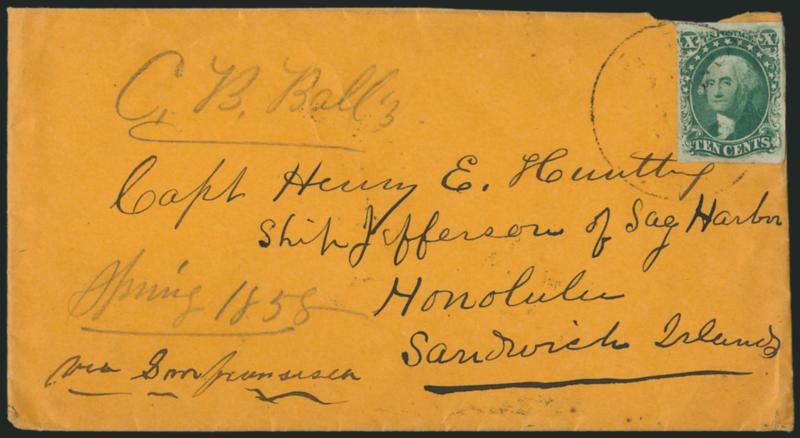 X U.S. POSTAGE X
TEN CENTS
C. B. Ball's
Capt Henry E. Huntting
Ship Jefferson of Sag Harbor
Spring 1858
Honolulu
Sandwich Islands
via San fransisca